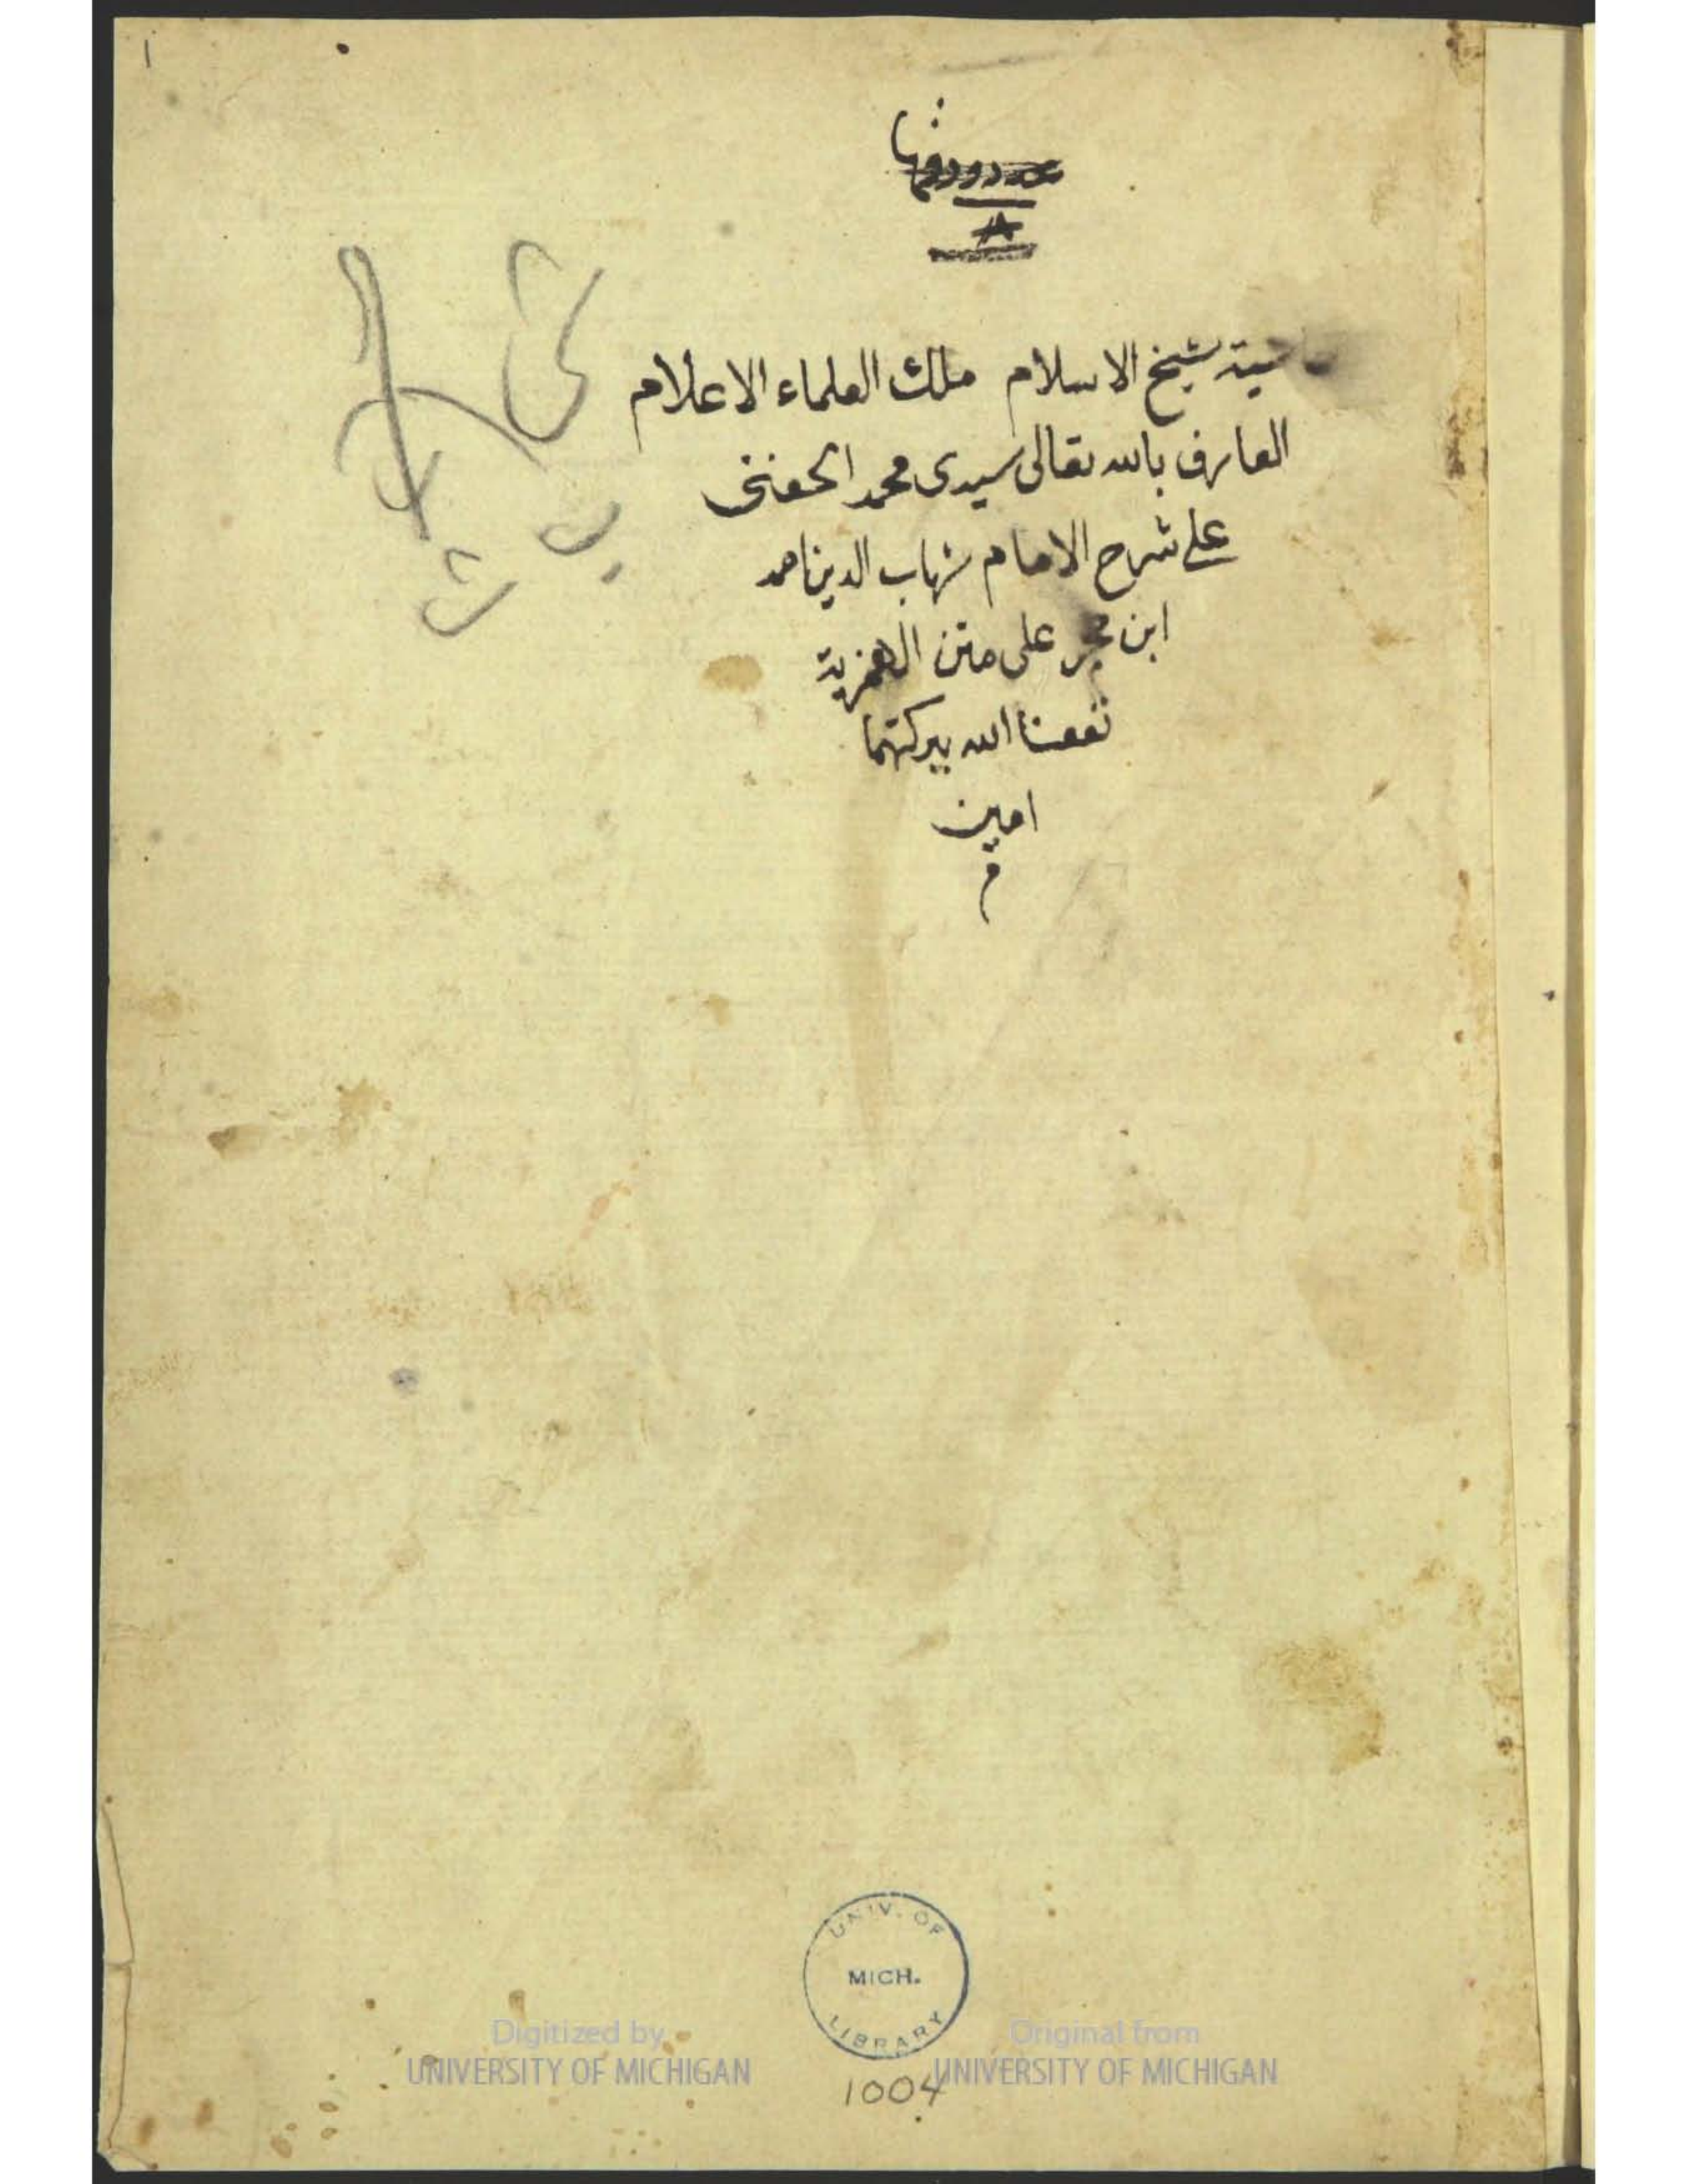 ١
شيخ الاسلام ملك العلماء الاعلام
العارف بالله تعالى سيدى محمد الحفنى
على شرح الامام شهاب الدين احمد
ابن حجر على متن الهمزية
نفعنا الله ببركتهما
امين
م
UNIV. OF
MICH.
LIBRARY
Digitized by
UNIVERSITY OF MICHIGAN
Original from
UNIVERSITY OF MICHIGAN
1004